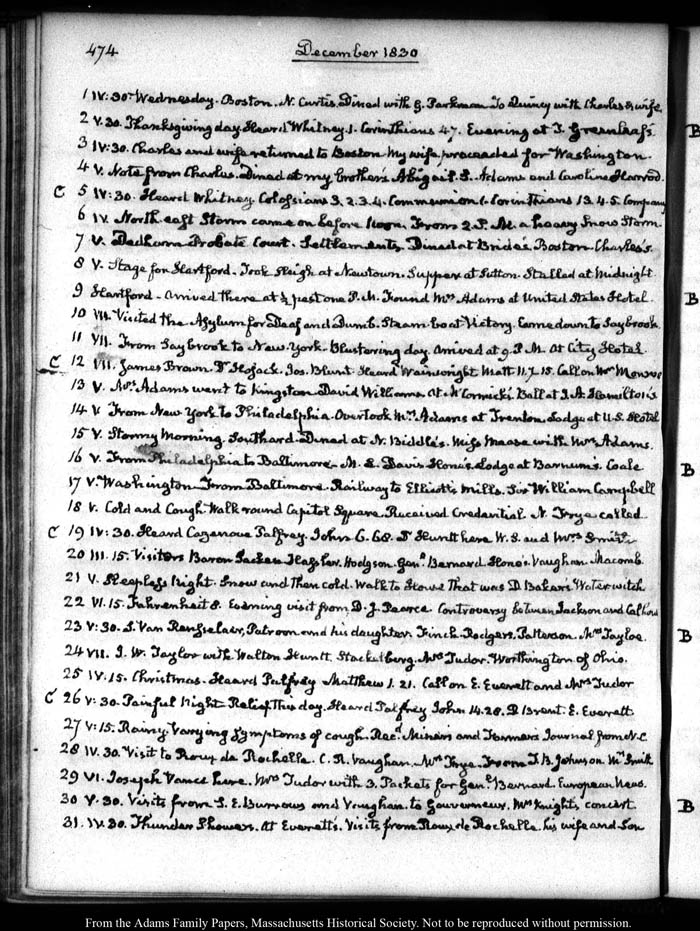 474 December 1830
1 IV:30. Wednesday. Boston. N. Curtis. Dined with G. Parkman To Quincy with Charles & wife
2 V.30. Thanksgiving day Heard Whitney 1. Corinthians 4 7. Evening at T. Greenleaf's
3 IV:30. Charles and wife returned to Boston My wife proceeded for Washington
4 V. Note from Charles. Dined at my brother's Abigail S. Adams and Caroline Harrod.
C 5 IV:30. Heard Whitney Colossians 3. 2. 3. 4. Communion 1. Corinthians 13 4. 5. Company
6 IV. North east Storm came on before Noon. From 2. P.M. a heavy Snow Storm
7 V. Dedham Probate Court. Settlements, Dined at Bride's. Boston Charles's
8 V. Stage for Hartford. Took Sleigh at Newtown. Supper at Sutton. Stalled at Midnight
9 Hartford. arrived there at ½ past one P.M. Found Mrs Adams at United States Hotel.
10 VII. Visited the Asylum for Deaf and Dumb. Steam boat Victory. Came down to Saybrook
11 VII. From Saybrook to New-York. Blustering day. arrived at 9. P.M. At City Hotel
C 12 VII. James Brown. Dr Hosack. Jos. Blunt. Heard Wainwright Matt 11. 7. 15. Call on Mr Monroe
13 V. Mrs Adams went to Kingston David Williams. At McCormick's Ball at J. A. Hamilton's
14 V From New York to Philadelphia. Overtook Mrs Adams at Trenton Lodge at U.S. Hotel
15 V. Stormy Morning. Southard. Dined at N. Biddle's. Miss Mease with Mrs Adams.
16 V. From Philadelphia to Baltimore. M. L. Davis Hone's. Lodge at Barnum's Coale
17 V. Washington From Baltimore. Railway to Elliott's Mills. Sir William Campbell
18 V. Cold and Cough. Walk round Capitol Square. Received Credential. N. Frye called
C 19 IV:30. Heard Cazenove Palfrey. John 6. 68. T Huntt here W. S. and Mrs Smith
20 III. 15. Visitors Baron Hodgson. Genl Bernard Hone's. Vaughan. Macomb.
21 V. Sleepless Night. Snow and then cold. Walk to House that was D. Baker's Water witch
22 VI. 15. Fahrenheit 8. Evening visit from D. J. Pearce Controversy between Jackson and Calhoun
23 V:30. S. Van Rensselaer, Patroon and his daughter. Finch. Rodgers. Patterson. Mrs Tayloe.
24 VII. J. W. Taylor with Walton Huntt. Stackelberg. Mrs Tudor. Worthington of Ohio.
25 IV. 15. Christmas. Heard Palfrey Matthew 1. 21. Call on E. Everett and Mrs Tudor
C 26 V:30. Painful Night Relief this day. Heard Palfrey John 14. 28. D Brent. E. Everett
27 V:15. Rainy. Varying Symptoms of cough. Recd. Miner's and Farmer's Journal from N.C.
28 IV. 30. Visit to Roux de Rochelle. C. R. Vaughan. Mrs Frye. From T. B. Johnson Mrs Smith
29 VI. Joseph Vance here. Mrs Tudor with 3. Packets for Genl Bernard European News.
30 V. 30. Visits from S. E. Burrows and Vaughan. to Gouverneur. Mrs Knight's concert
31. IV. 30. Thunder Shower. At Everett's. Visits from Roux de Rochelle. his wife and Son
B
B
B
B
B
From the Adams Family Papers, Massachusetts Historical Society. Not to be reproduced without permission.